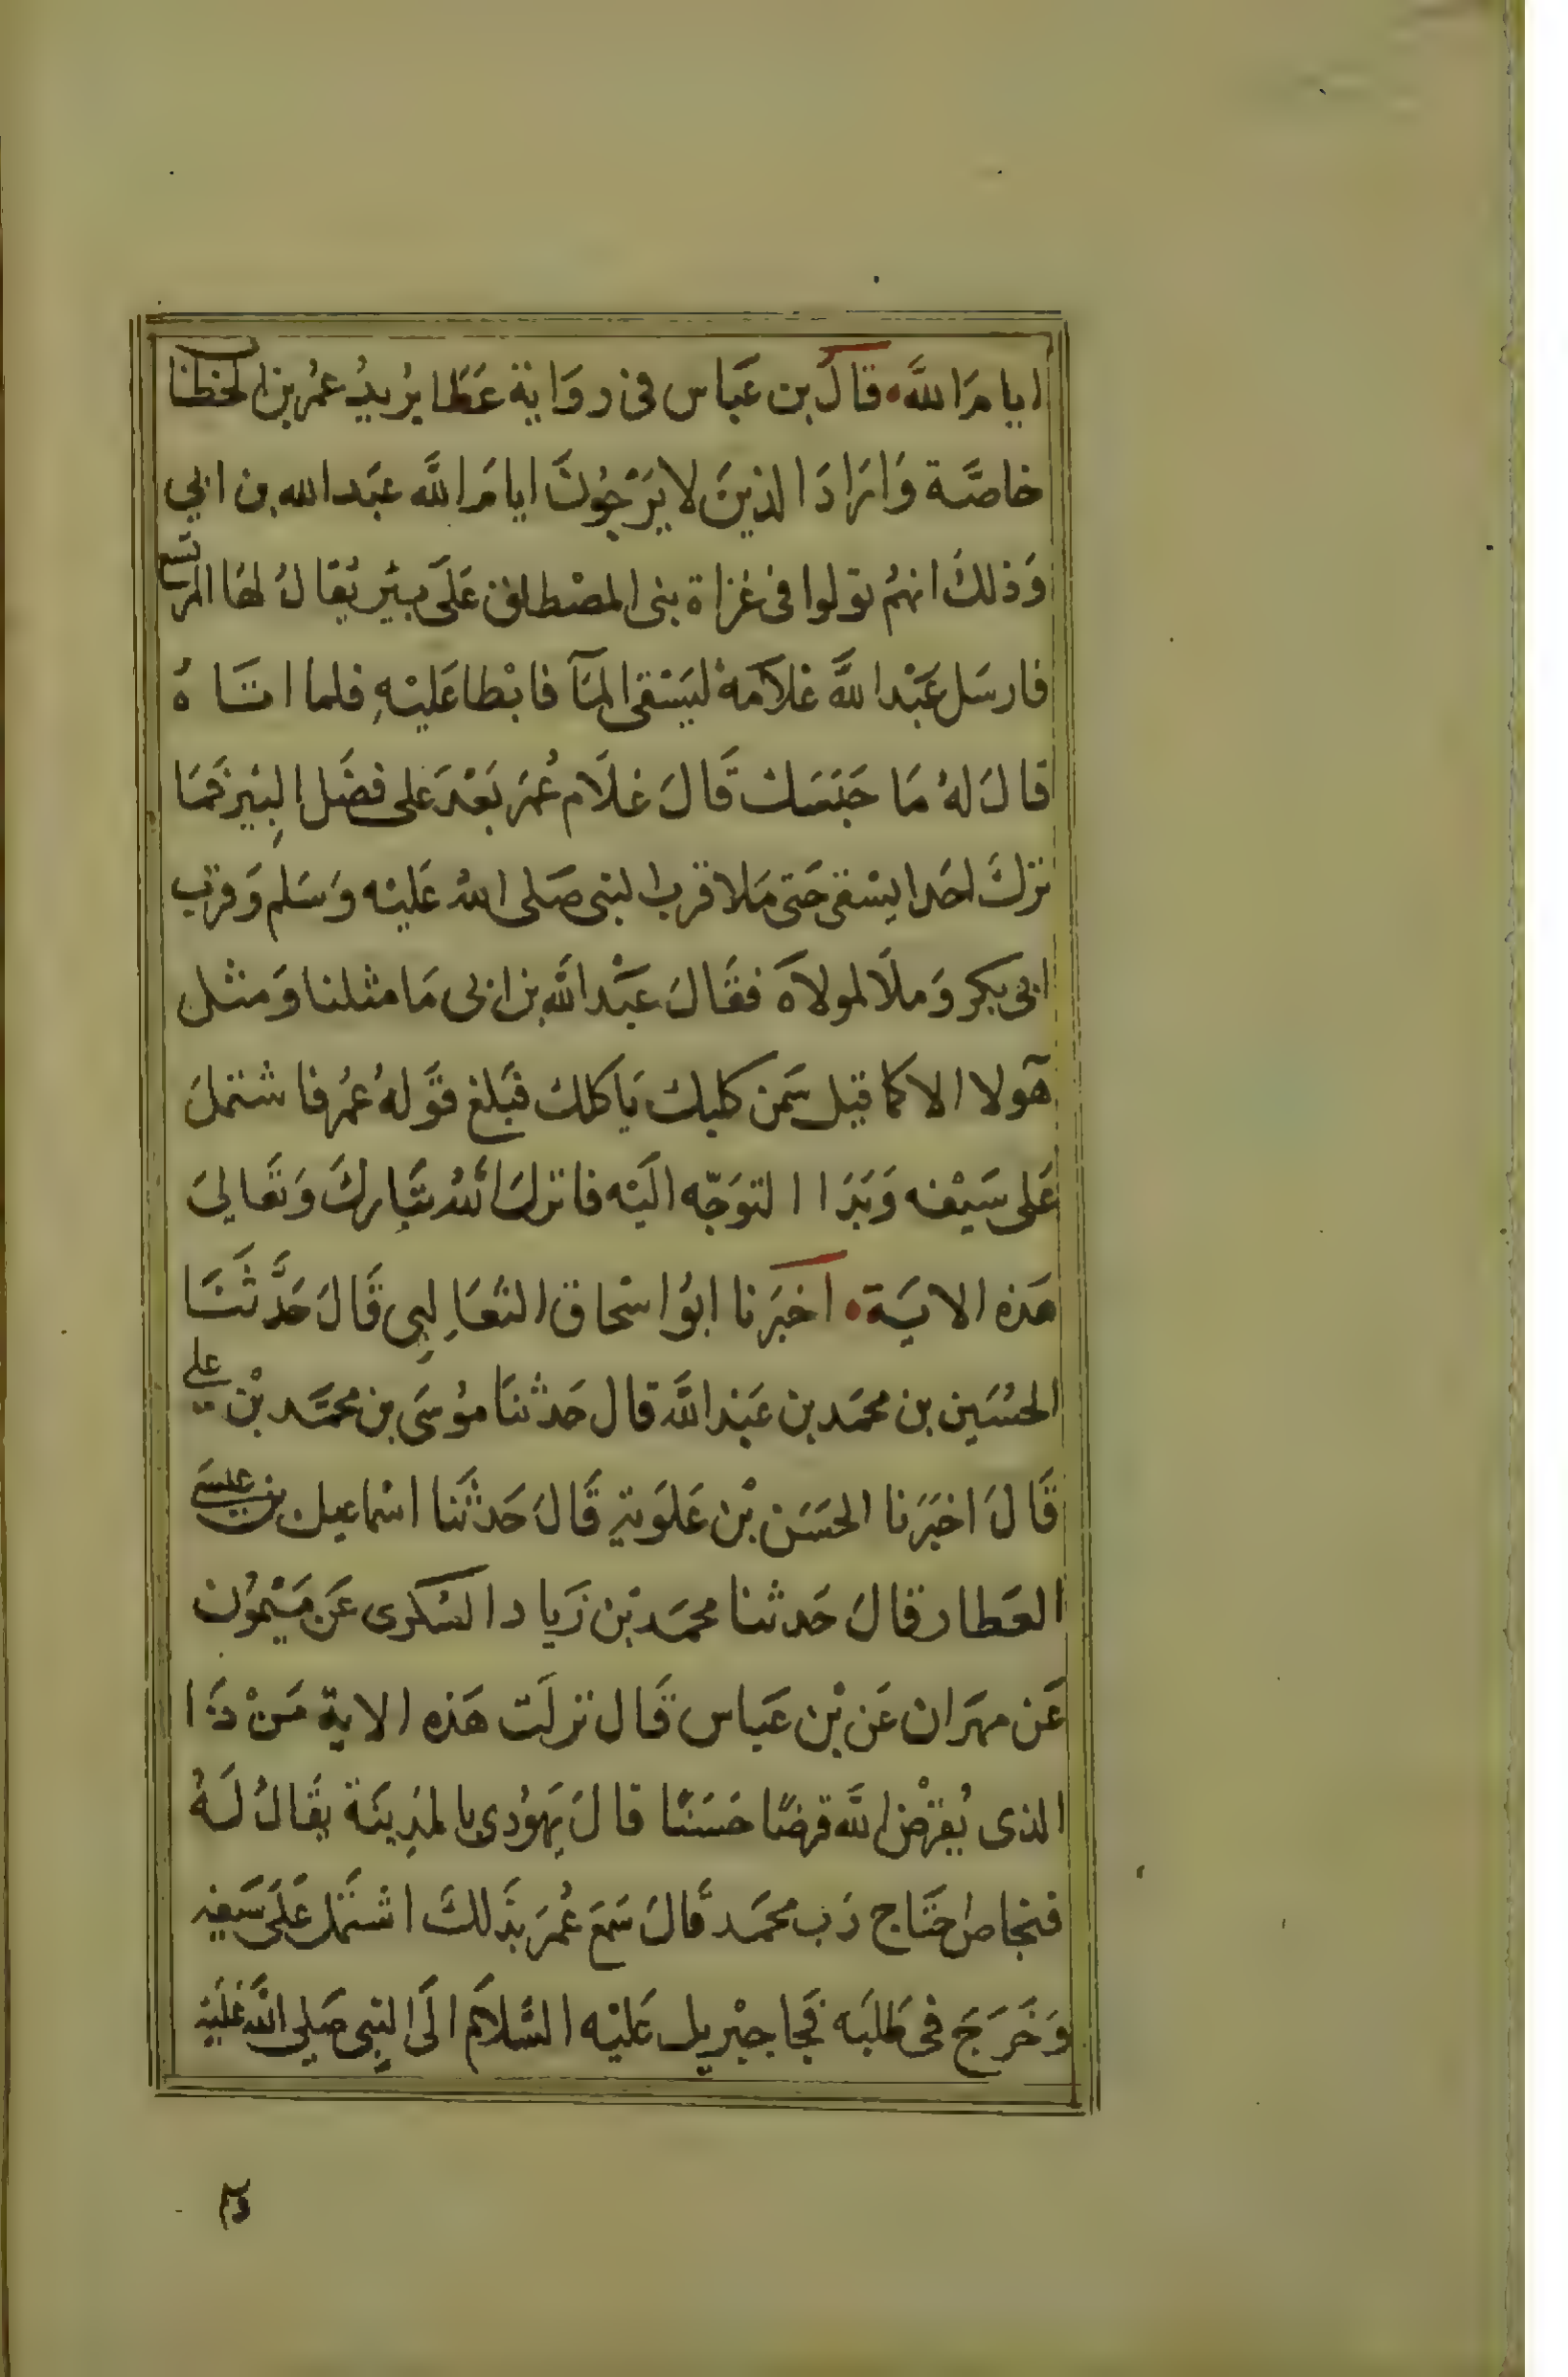 ايامَ اللَّه قالَ بن عَبَاس فى روَاية عَطَا يُريدُ عمُر بن الخطاب
خاصَّة وَارَادَ الذينَ لا يَرْجُونَ ايامَ اللَّه عبَد الله بن ابي
وَذلكَ انهمُ نزلوا فى غزاة بنى المصْطلق عَلَى بيْر يُقالُ لهَا المريسع
فارسَل عَبْد اللَّه غلامَهُ ليَسْقى المَآ فابْطا عَليْهِ فلما اتَاهُ
قالَ لهُ مَا حَبَسَك قَالَ غلَام عُمَر بَعَدَ على فضَل البِيْر فمَا
تركَ احَدا يسْقى حَتى مَلا قرب النبى صَلى اللهُ عَليْه وَسَلم وَقرب
ابى بكر وَملَا لمولاهَ فقَالَ عَبْد اللَّه بن ابى مَا مثلنا وَمثل
هَولا الا كما قيل سَمن كلبك يَاكلك فبَلغ قوَلهُ عمُر فاشتملَ
عَلى سَيْفه وَبَدَا التوَجّه اليَه فانزلَ اللهُ تبَاركَ وَتعَاليَ
هَذه الايَة اخبَرنا ابوُ اسْحاق الثعَالبِى قَالَ حَدَّثنَا
الحسُيَن بن محمَد بن عَبَد اللَّه قال حَدثنَا موُسَى بن محمَّد بْن علي
قَالَ اخبَرَنا الحَسَن بْن عَلوَية قَالَ حَدثَنا اسْماعيل بن عيسَى
العَطار قالَ حَدثنا محمَد بْن زَياد السَكرى عَن مَيْموُن
عَن مهرَان عَن بْن عَبَاس قَال نزلَت هَذه الاية مَنْ ذَا
الذى يُقرْض اللَّه قرضًا حَسَنًا قالَ يَهوُدى بالمَدينَة يقَالُ لَهُ
فنحاص احتَاج رَب محمَد قَالَ سَمعَ عُمَر بذَلكَ اشتَمل عَلَى سَيفه
وَخَرَجَ فى طَلبَه فجَا جبْريل عَليْه السَّلامَ الَى النِبى صَلى اللَّه عَليَه